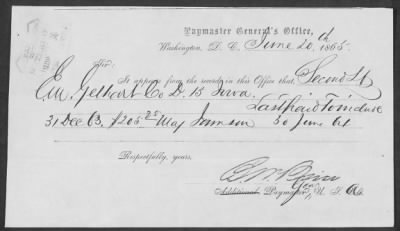 Paymaster General's Office,
Washington, D. C., June 20th 1865
Sir:
It appears from the records in this Office that, Second Lt
Em. Co D. 15 Iowa, Last Paid To include
31 Dec 63, $205.25 Maj 30 June 64
Respectfully, yours,
Additional Paymaster U. S. A.